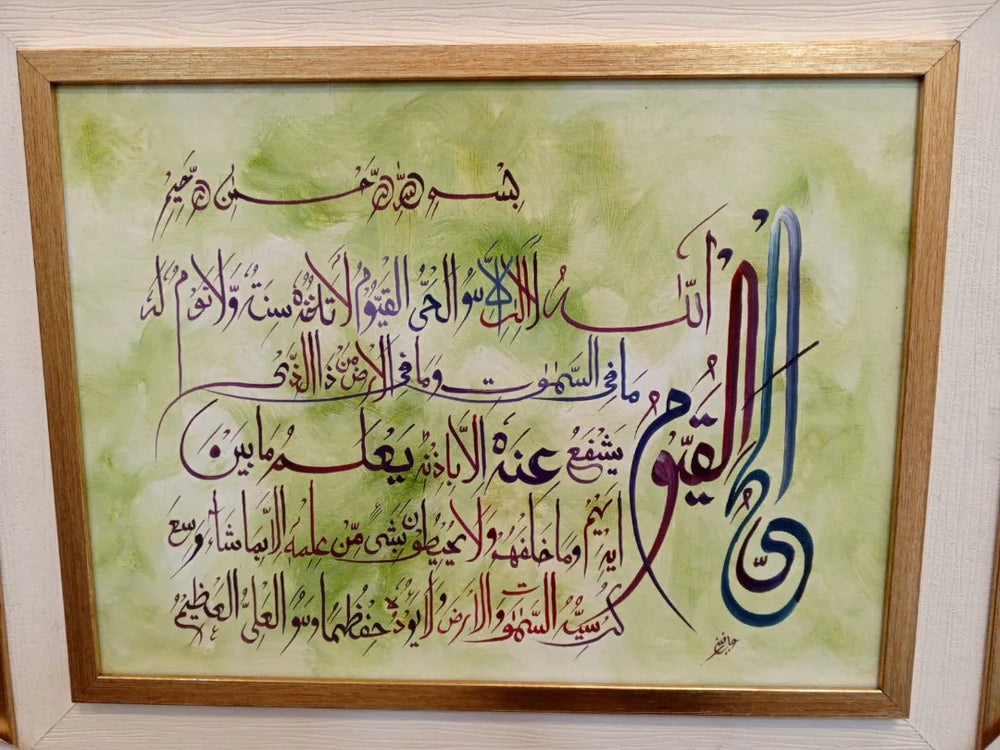 بسم الله الرحمن الرحيم
الحي القيوم
الله لا اله الا هو الحي القيوم لا تاخذه سنة ولا نوم له
ما في السمٰوٰت وما في الارض من ذا الذي
يشفع عنده الا باذنه يعلم ما بين
ايديهم وما خلفهم ولا يحيطون بشيء من علمه الا بما شاء وسع
كرسيه السمٰوٰت والارض ولا يوده حفظهما وهو العلي العظيم